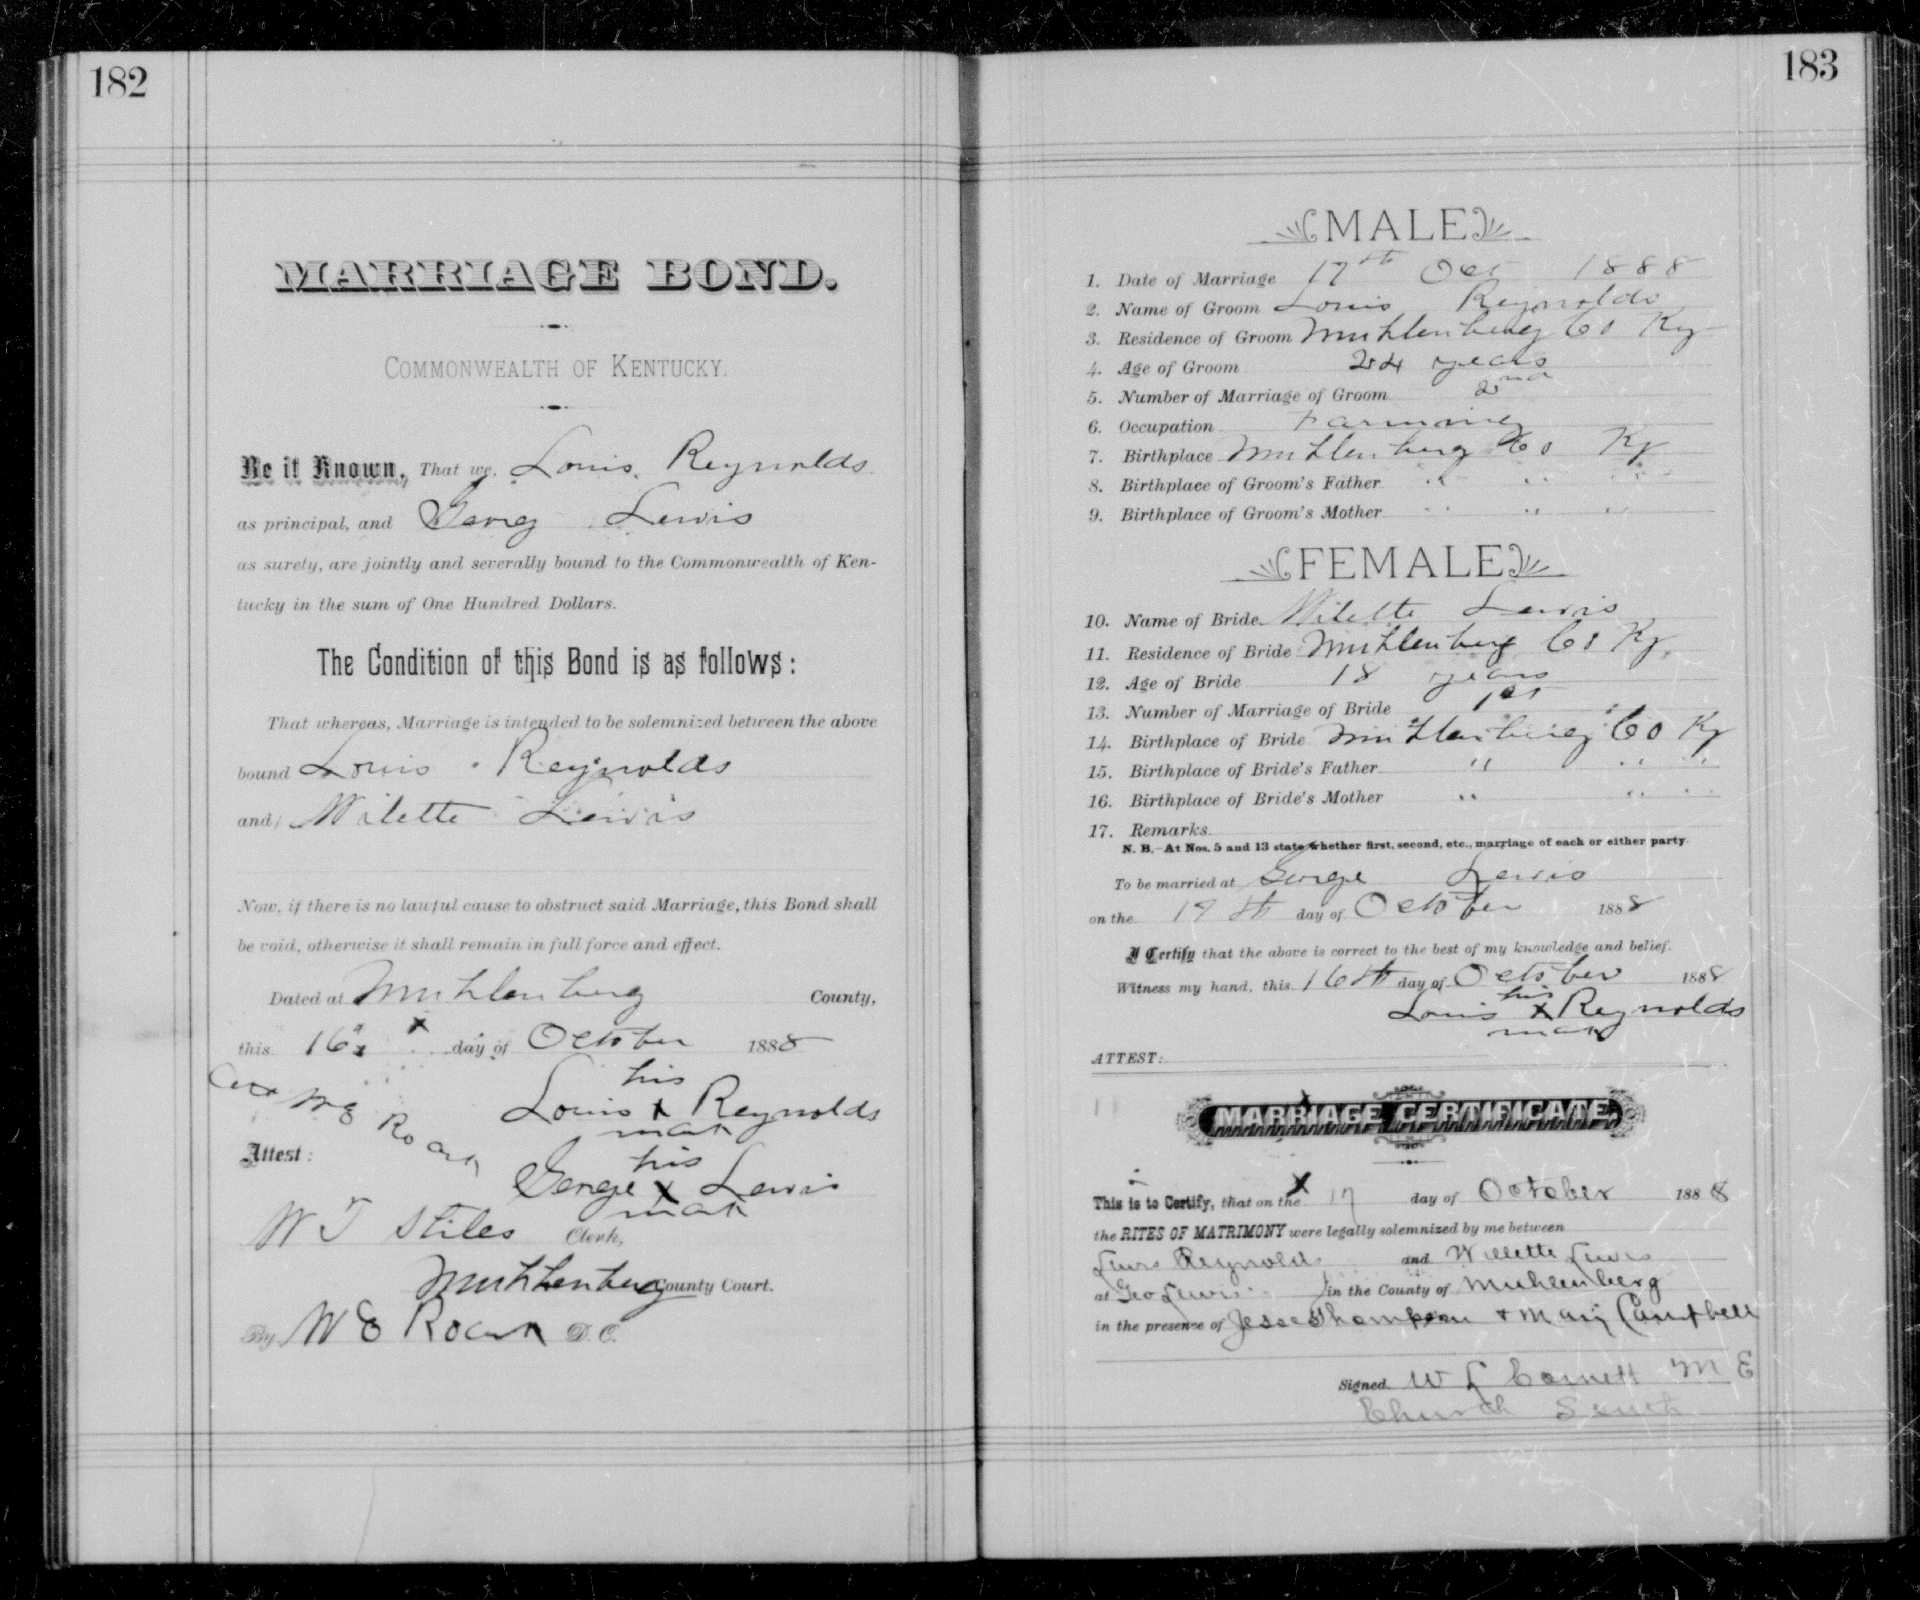 182
MARRIAGE BOND.
COMMONWEALTH OF KENTUCKY.
Be it Known, That we, Louis Reynolds
as principal, and Georg Lewis
as surety, are jointly and severally bound to the Commonwealth of Ken-
tucky in the sum of One Hundred Dollars.
The Condition of this Bond is as follows:
That whereas, Marriage is intended to be solemnized between the above
bound Louis Reynolds
and Wilette Lewis
Now, if there is no lawful cause to obstruct said Marriage, this Bond shall
be void, otherwise it shall remain in full force and effect.
Dated at Muhlenberg County,
this 16" x day of October 1888
his
W E Roark Louis x Reynolds
mark
Attest:
his
George x Lewis
mark
W T Stiles Clerk,
Muhlenberg County Court.
By W E Roark D. C.
183
MALE
1. Date of Marriage 17th Oct 1888
2. Name of Groom Louis Reynolds
3. Residence of Groom Muhlenberg Co Ky
4. Age of Groom 24 years
5. Number of Marriage of Groom 2nd
6. Occupation Farming
7. Birthplace Muhlenberg Co Ky
8. Birthplace of Groom's Father " " "
9. Birthplace of Groom's Mother " " "
FEMALE
10. Name of Bride Wilette Lewis
11. Residence of Bride Muhlenberg Co Ky.
12. Age of Bride 18 years
13. Number of Marriage of Bride 1st
14. Birthplace of Bride Muhlenberg Co Ky
15. Birthplace of Bride's Father " " "
16. Birthplace of Bride's Mother " " "
17. Remarks
N. B.—At Nos. 5 and 13 state whether first, second, etc., marriage of each or either party.
To be married at George Lewis
on the 17th day of October 1888
I Certify that the above is correct to the best of my knowledge and belief.
Witness my hand, this 16th day of October 1888
his
Louis x Reynolds
mark
ATTEST:
MARRIAGE CERTIFICATE.
This is to Certify, that on the x 17 day of October 1888
the RITES OF MATRIMONY were legally solemnized by me between
Lewis Reynolds and Willette Lewis
at Geo Lewis in the County of Muhlenberg
in the presence of Jesse Thompson & Mary Campbell
Signed W L Casnett M E
Church South